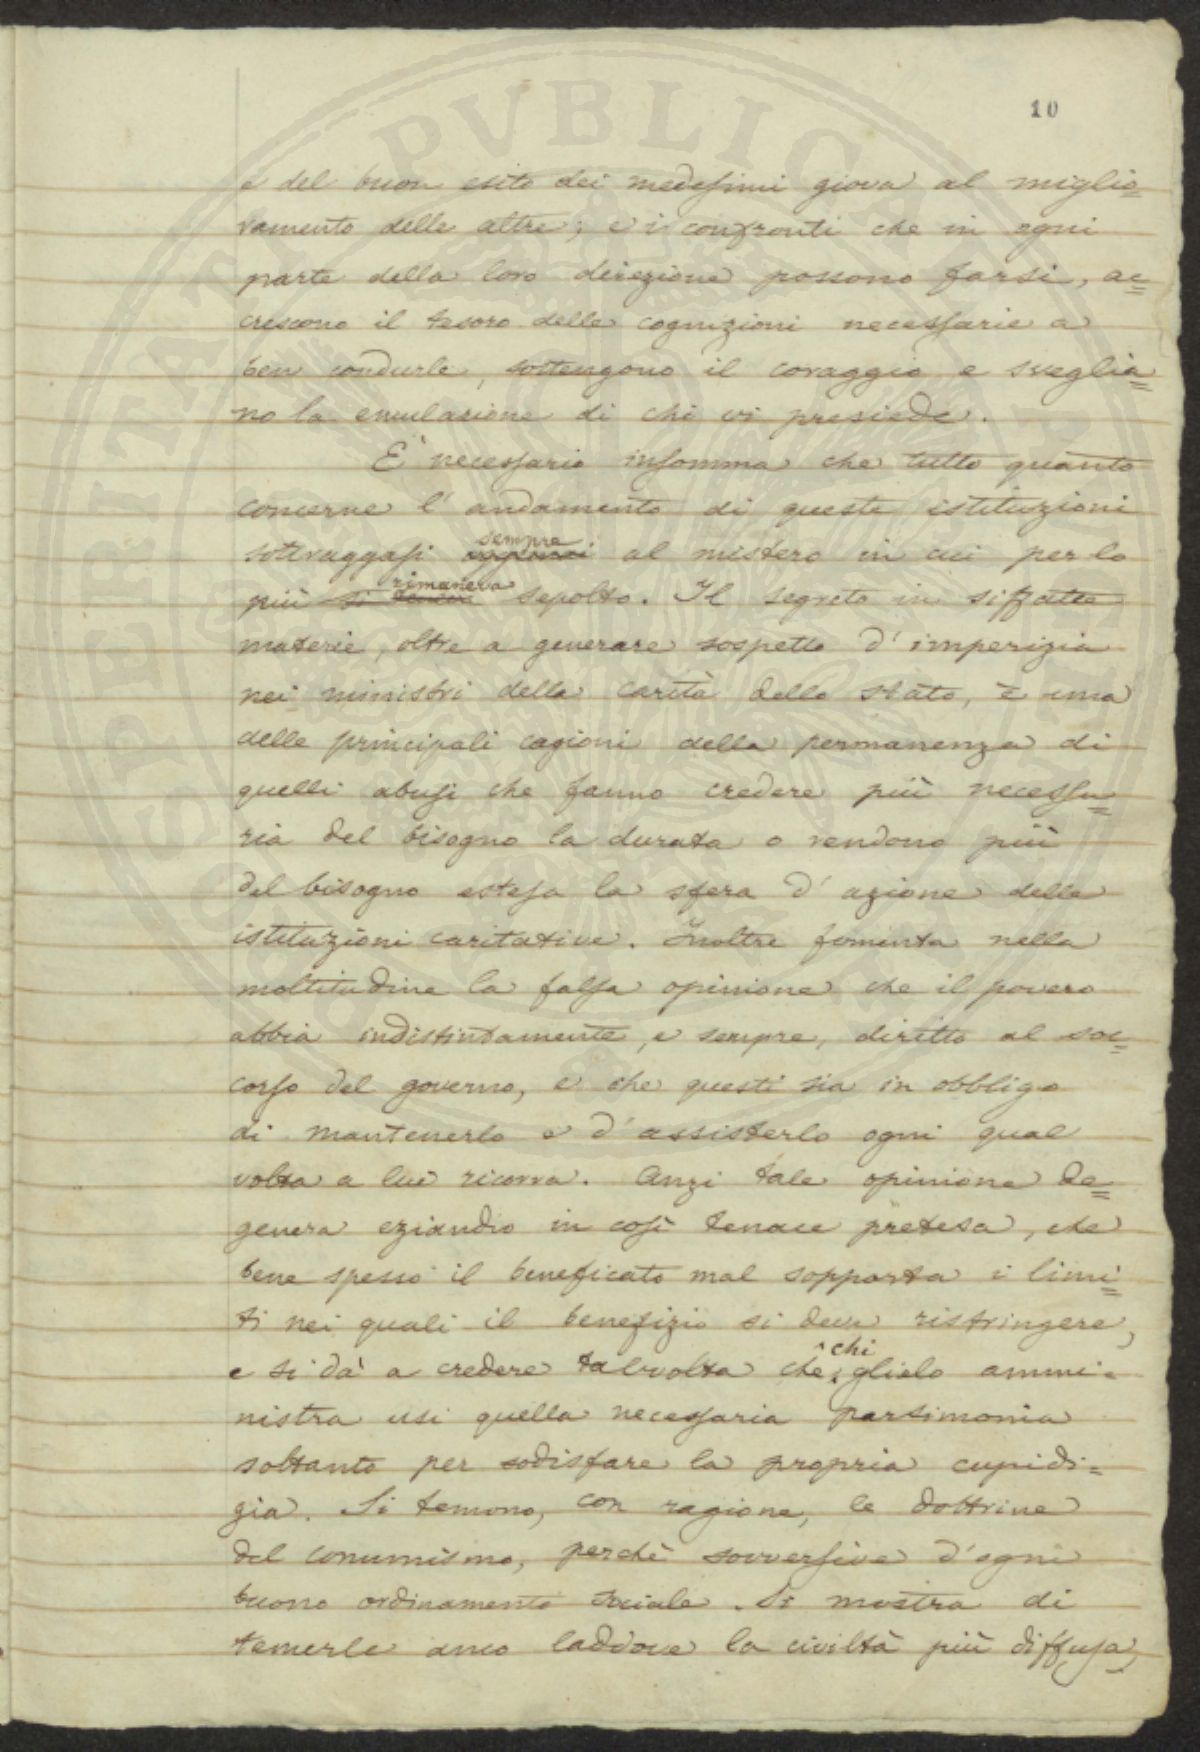 10
e del buon esito dei medesimi giova al miglio=
ramento delle altre; e i confronti che in ogni
parte della loro direzione possono farsi, ac=
crescono il tesoro delle cognizioni necessarie a
ben condurle, sostengono il coraggio e sveglia=
no la emulazione di chi vi presiede.
E' necessario insomma che tutto quanto
concerne l'andamento di queste istituzioni
sempre
sottraggasi al mistero in cui per lo
rimaneva
più si teneva sepolto. Il segreto in siffatte
materie, oltre a generare sospetto d'imperizia
nei ministri della carità dello stato, è una
delle principali cagioni della permanenza di
quelli abusi che fanno credere più necessa=
ria del bisogno la durata o rendono più
del bisogno estesa la sfera d'azione delle
istituzioni caritative. Inoltre fomenta nella
moltitudine la falsa opinione che il povero
abbia indistintamente, e sempre, diritto al soc=
corso del governo, e che questi sia in obbligo
di mantenerlo e d'assisterlo ogni qual
volta a lui ricorra. Anzi tale opinione de=
genera eziandio in così tenace pretesa, che
bene spesso il beneficato mal sopporta i limi=
ti nei quali il benefizio si deve ristringere,
chi
e si dà a credere talvolta che glielo ammi=
nistra usi quella necessaria parsimonia
soltanto per sodisfare la propria cupidi=
gia. Si temono, con ragione, le dottrine
del conumismo, perchè sovversive d'ogni
buono ordinamento sociale. Si mostra di
temerle anco laddove la civiltà più diffusa,
PVBLICAE
PROSPERITATI